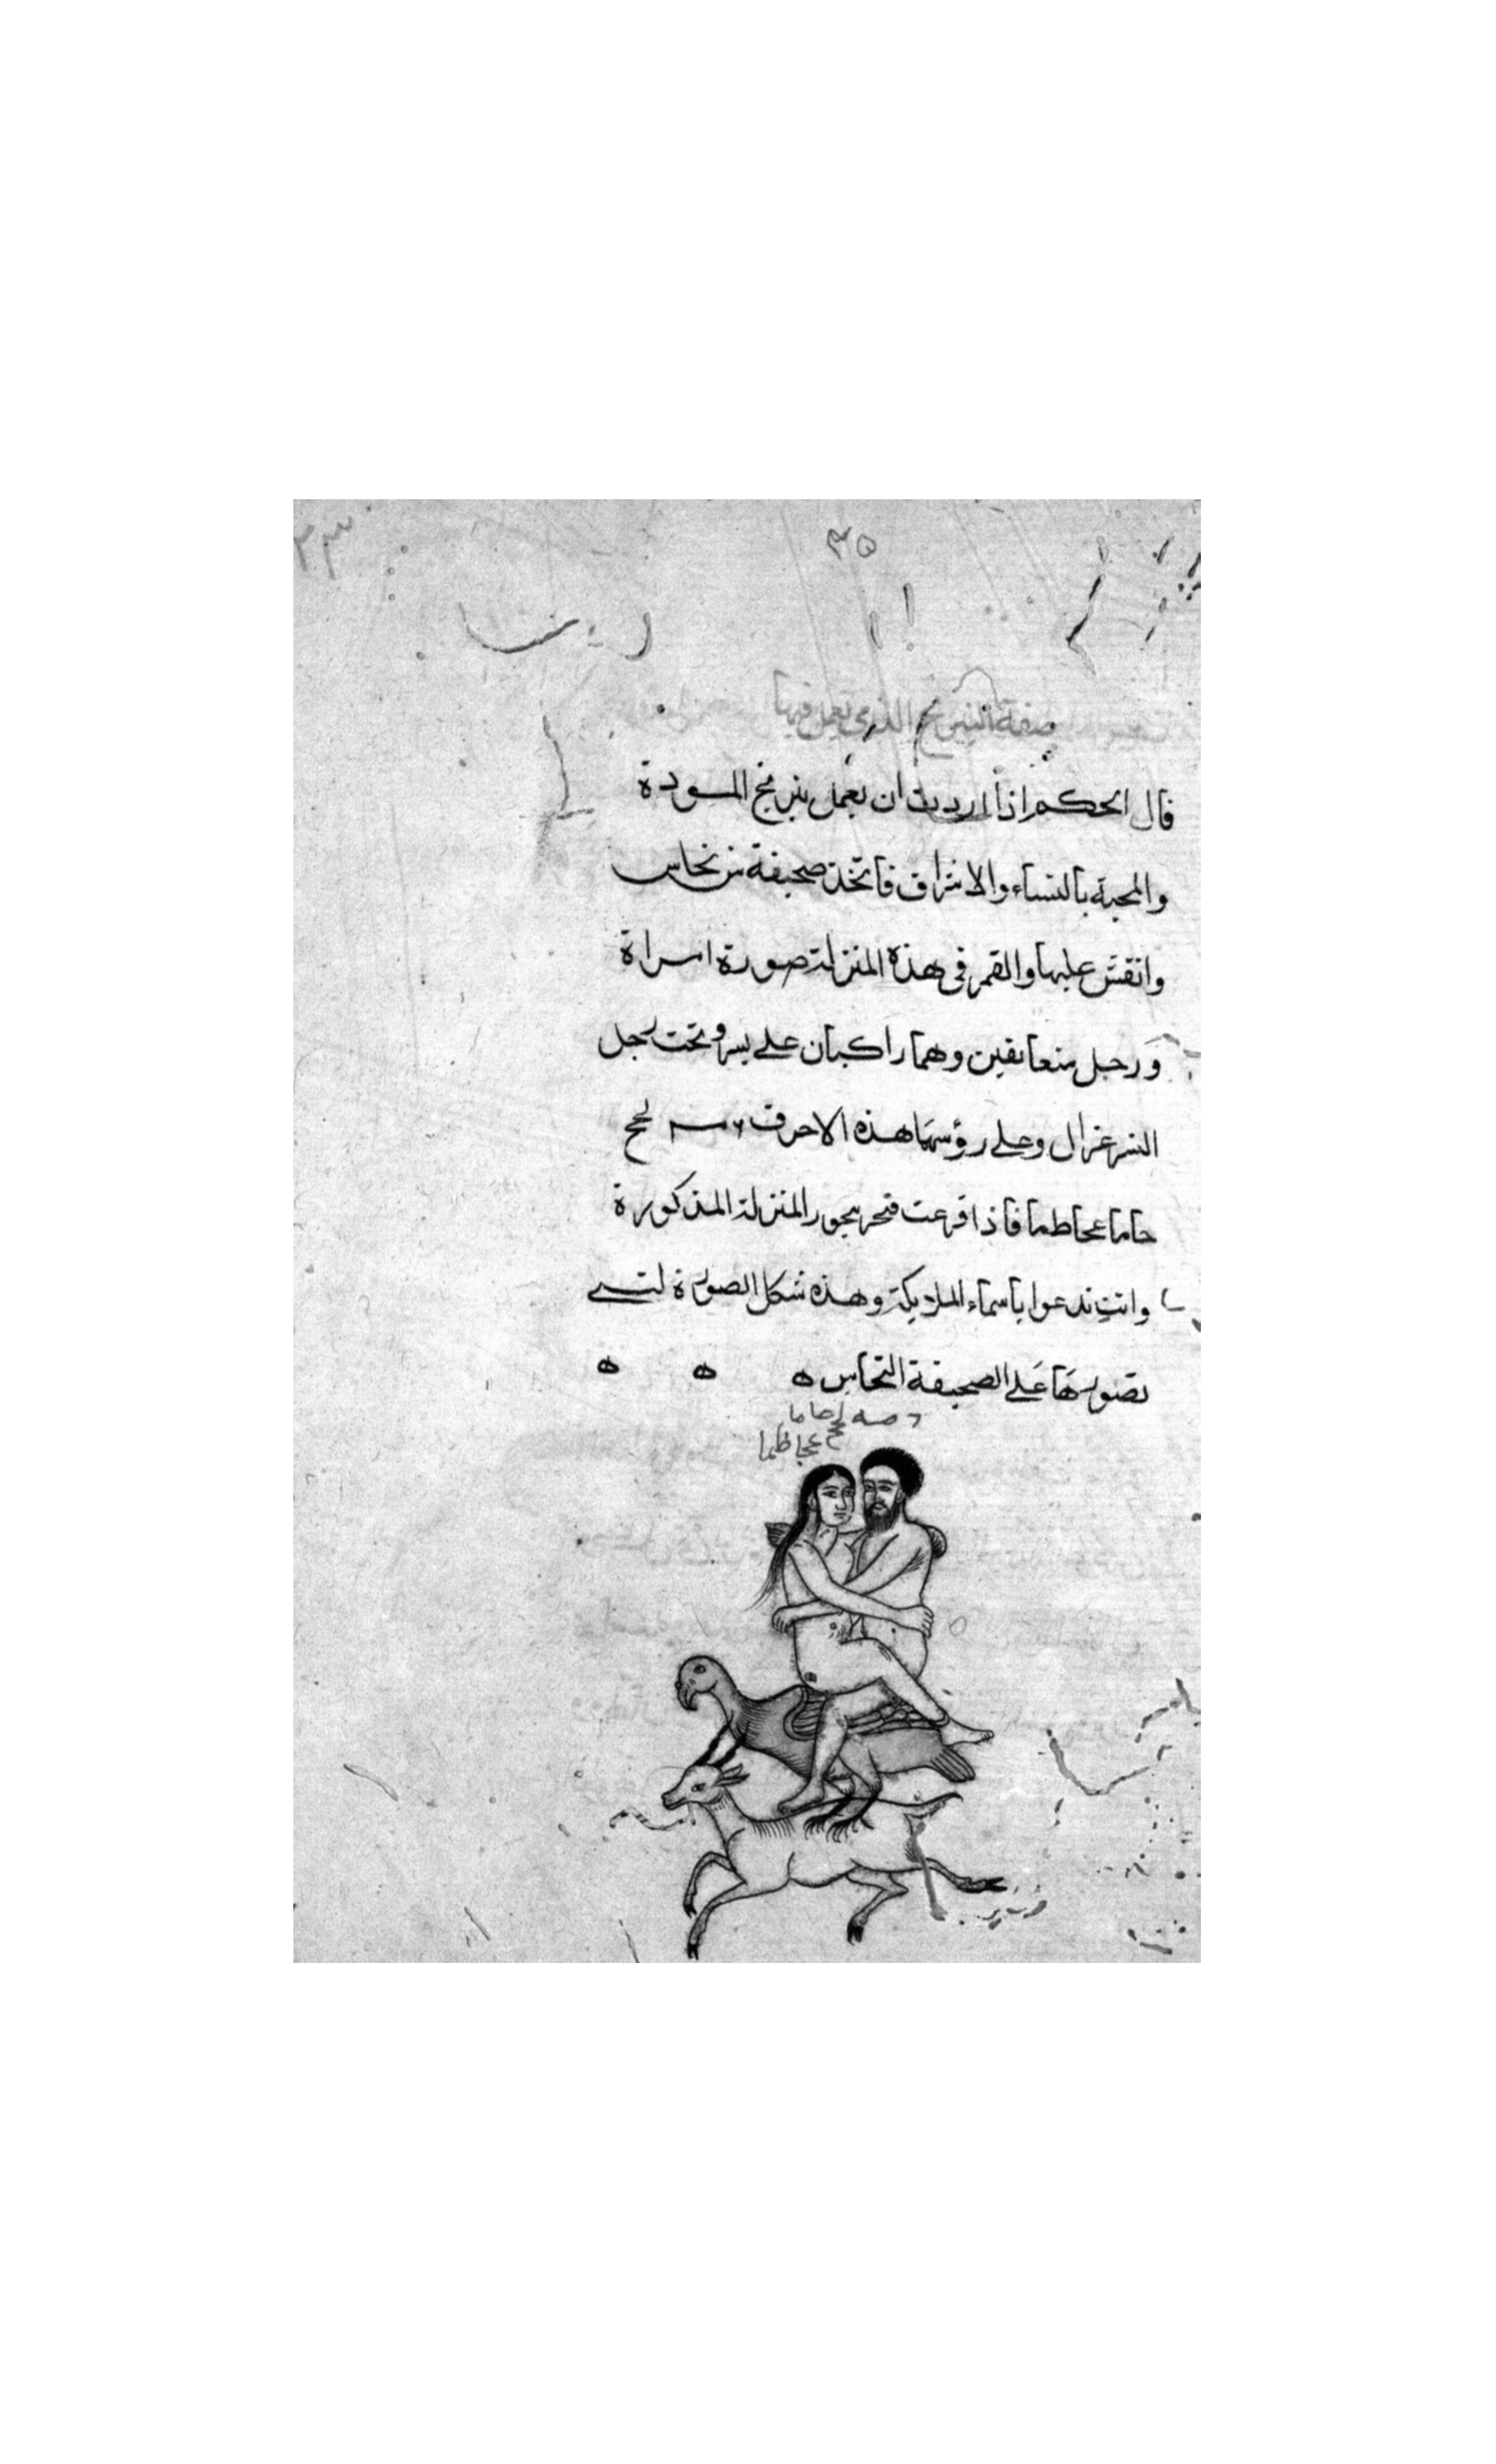 ٣٥
٣٣
صفة النيرنج الذي يعمل فيها
قال الحكيم اذا اردت ان تعمل نيرنج المودة
والمحبة بالنساء والاشراف فاتخذ صحيفة من نحاس
وانقش عليها والقمر في هذه المنزلة صورة امراة
ورجل متعانقين وهما راكبان على نسر وتحت رجل
النسر غزال وعلى رؤسهما هذه الاحرف لحح
حاما عجاطما فاذا فرغت فبخر ببخور المنزلة المذكورة
وانت تدعوا باسماء الملايكة وهذه شكل الصورة التي
تصورها على الصحيفة النحاس ه ه ه
لحح حاما
عجاطما